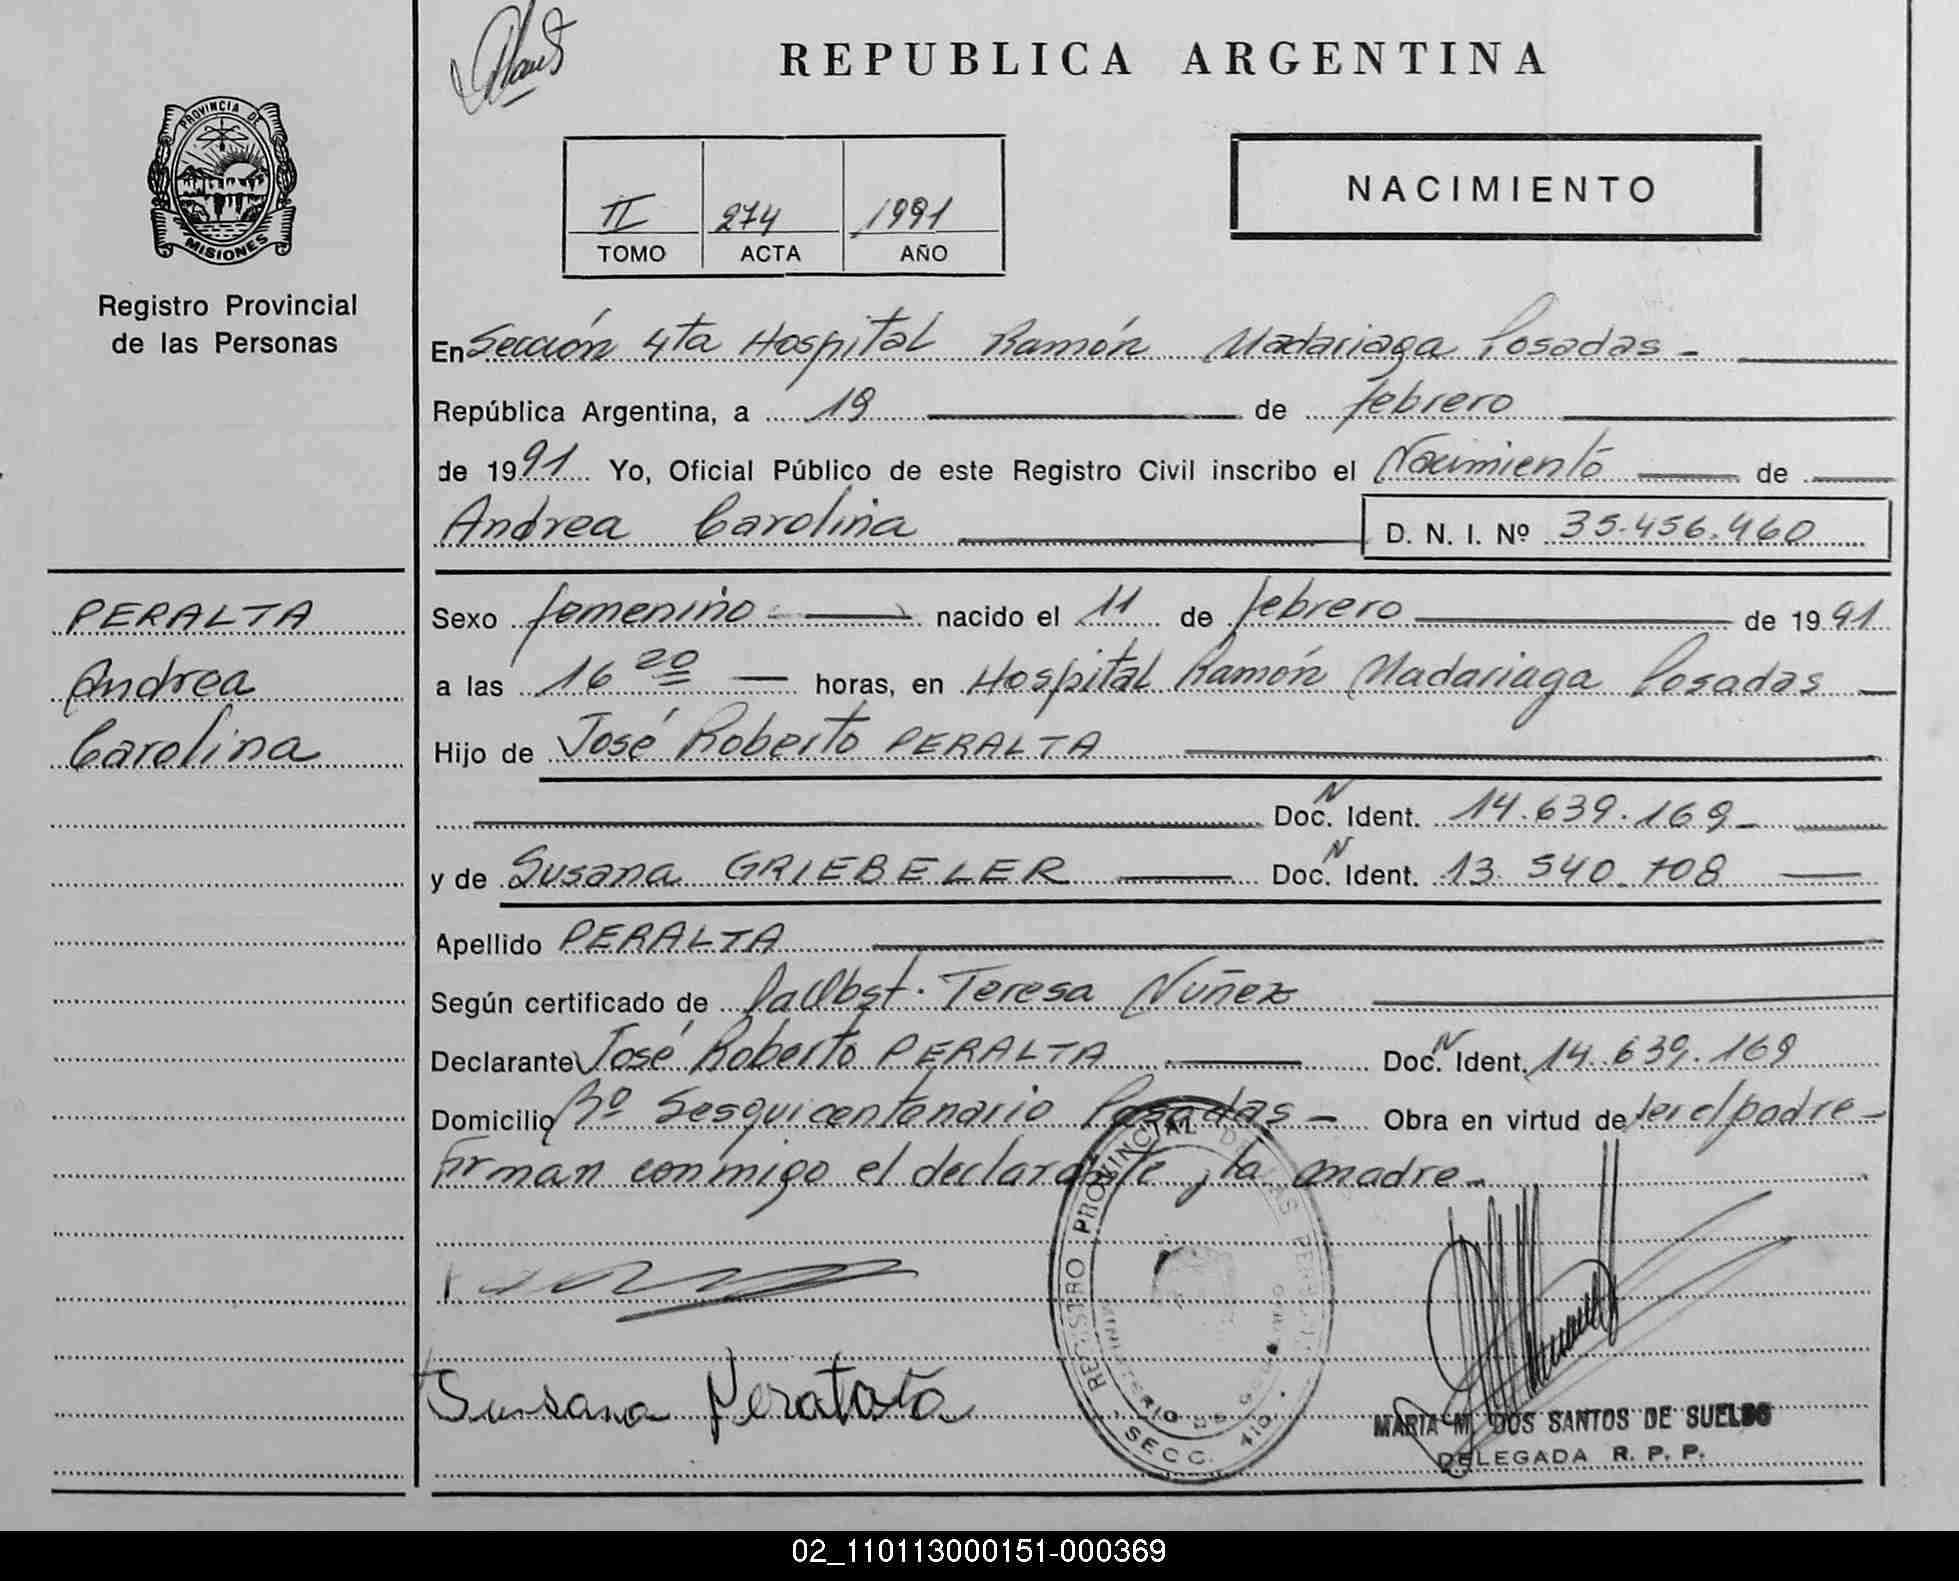 REPUBLICA ARGENTINA
PROVINCIA DE
MISIONES
Registro Provincial
de las Personas
NACIMIENTO
II 274 1991
TOMO ACTA AÑO
En Sección 4ta Hospital Ramón Madariaga Posadas -
República Argentina, a 19 de febrero
de 1991 Yo, Oficial Público de este Registro Civil inscribo el Nacimiento de
Andrea Carolina D. N. I. Nº 35.456.460
PERALTA
Andrea
Carolina
Sexo femenino nacido el 11 de febrero de 1991
a las 16 20 horas, en Hospital Ramón Madariaga Posadas
Hijo de José Roberto PERALTA
Doc. N Ident. 14.639.169 -
y de Susana GRIEBELER Doc. N Ident. 13.540.708
Apellido PERALTA
Según certificado de Teresa Nuñez
Declarante José Roberto PERALTA Doc. N Ident. 14.639.169
Domicilio Bº Sesquicentenario Posadas - Obra en virtud de ser el padre -
Firman conmigo el declarante y la madre -
REGISTRO PROVINCIAL DE LAS PERSONAS
MINISTERIO DE GOBIERNO
SECC. 4ta.
Susana
MARIA M. DOS SANTOS DE SUELDO
DELEGADA R. P. P.
02_110113000151-000369